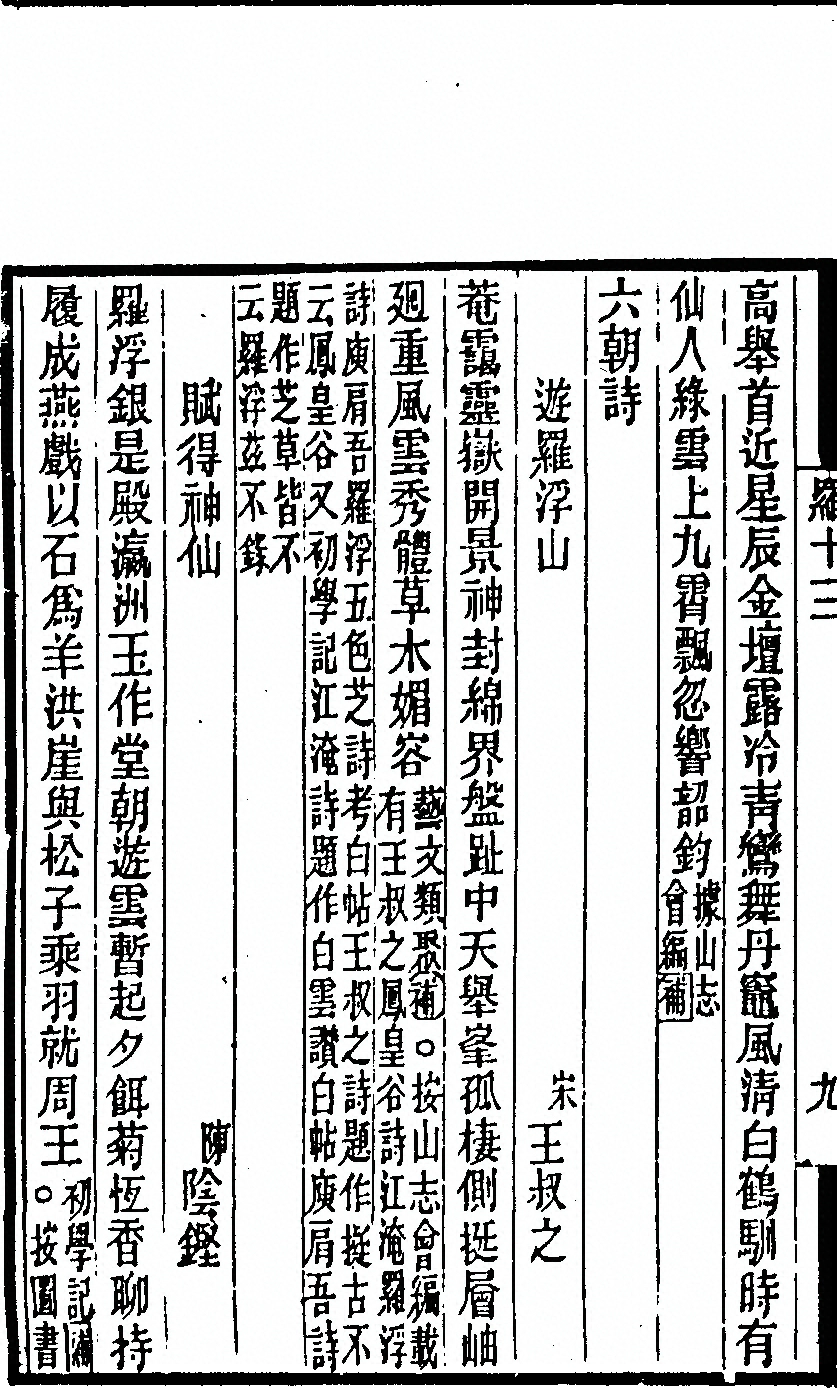 羅十三　九
高舉首近星辰金壇露冷青鸞舞丹竈風清白鶴馴時有
仙人綠雲上九霄飄忽響韶鈞據山志會編補
六朝詩
遊羅浮山　宋王叔之
菴靄靈嶽開景神封綿界盤趾中天舉峯孤棲側挺層岫
廻重風雲秀體草木媚容藝文類聚補○按山志會編載有王叔之鳳皇谷詩江淹羅浮
詩庾肩吾羅浮五色芝詩考白帖王叔之詩題作擬古不云鳳皇谷又初學記江淹詩題作白雲讚白帖庾肩吾詩
題作芝草皆不云羅浮茲不錄
賦得神仙　陳陰鏗
羅浮銀是殿瀛洲玉作堂朝遊雲暫起夕餌菊恆香聊持
履成燕戲以石爲羊洪崖與松子乘羽就周王初學記補○按圖書